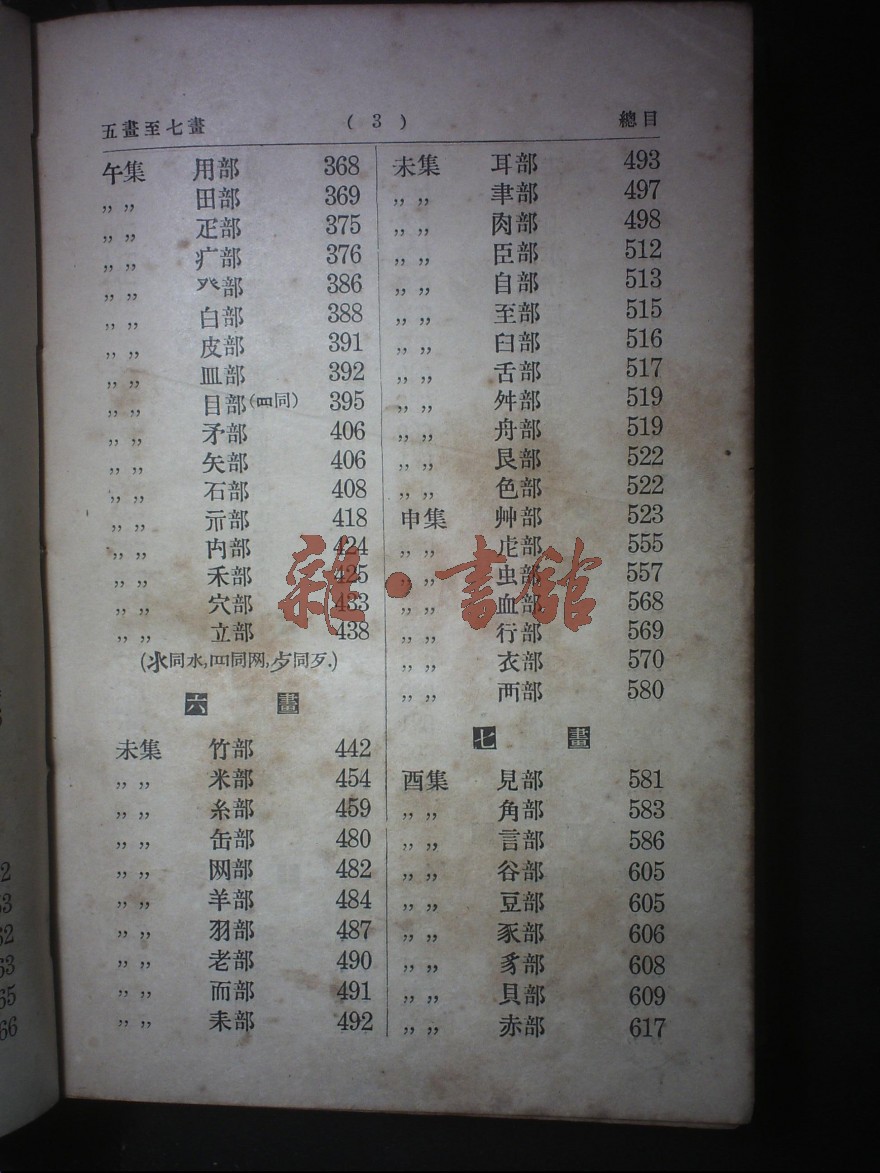 五畫至七畫 ( 3 ) 總目
午集 用部 368
,, ,, 田部 369
,, ,, 疋部 375
,, ,, 疒部 376
,, ,, 癶部 386
,, ,, 白部 388
,, ,, 皮部 391
,, ,, 皿部 392
,, ,, 目部(罒同) 395
,, ,, 矛部 406
,, ,, 矢部 406
,, ,, 石部 408
,, ,, 示部 418
,, ,, 禸部 424
,, ,, 禾部 425
,, ,, 穴部 433
,, ,, 立部 438
(氺同水,罒同网,歺同歹.)
六 畫
未集 竹部 442
,, ,, 米部 454
,, ,, 糸部 459
,, ,, 缶部 480
,, ,, 网部 482
,, ,, 羊部 484
,, ,, 羽部 487
,, ,, 老部 490
,, ,, 而部 491
,, ,, 耒部 492
未集 耳部 493
,, ,, 聿部 497
,, ,, 肉部 498
,, ,, 臣部 512
,, ,, 自部 513
,, ,, 至部 515
,, ,, 臼部 516
,, ,, 舌部 517
,, ,, 舛部 519
,, ,, 舟部 519
,, ,, 艮部 522
,, ,, 色部 522
申集 艸部 523
,, ,, 虍部 555
,, ,, 虫部 557
,, ,, 血部 568
,, ,, 行部 569
,, ,, 衣部 570
,, ,, 襾部 580
七 畫
酉集 見部 581
,, ,, 角部 583
,, ,, 言部 586
,, ,, 谷部 605
,, ,, 豆部 605
,, ,, 豕部 606
,, ,, 豸部 608
,, ,, 貝部 609
,, ,, 赤部 617
雜·書館